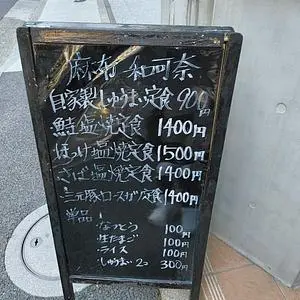 麻布 和可奈
自家製しゅうまい定食 900円
鮭塩焼定食 1400円
ほっけ塩焼定食 1500円
さば塩焼定食 1400円
三元豚ロースカツ定食 1400円
単品
なっとう 100円
生たまご 100円
ライス 100円
しゅうまい2コ 300円